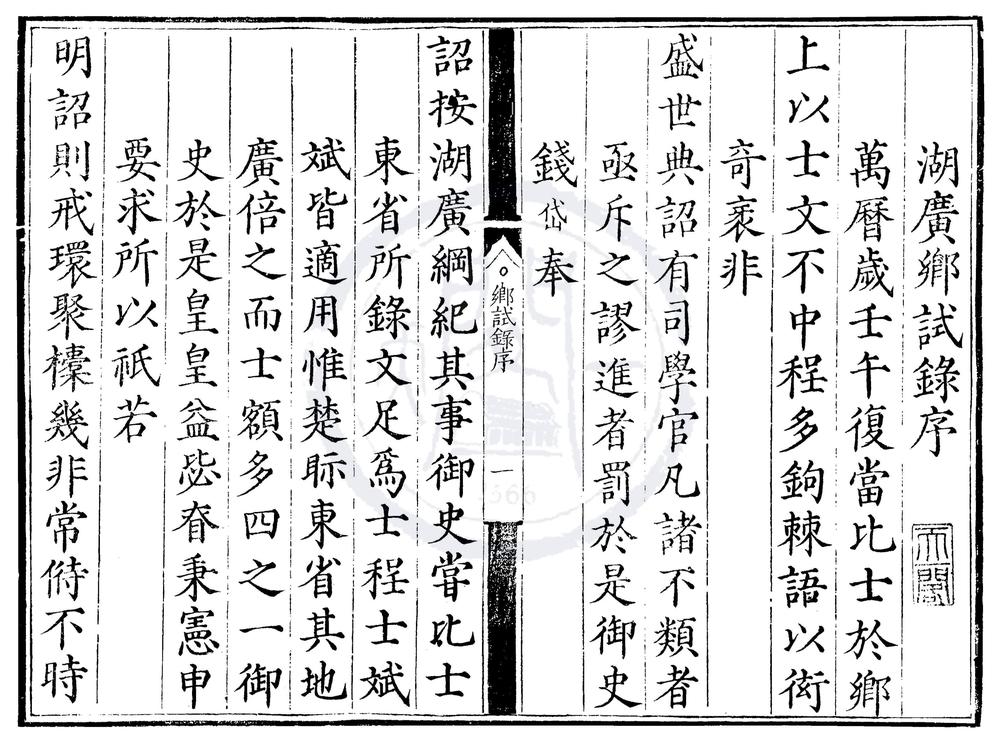 湖廣鄉試錄序
萬曆歲壬午復當比士於鄉
上以士文不中程多鉤棘語以衒
奇袤非
盛世典詔有司學官凡諸不類者
亟斥之謬進者罰於是御史
錢岱奉
鄉試錄序
一
詔按湖廣綱紀其事御史嘗比士
東省所錄文足爲士程士斌
斌皆適用惟楚眎東省其地
廣倍之而士額多四之一御
史於是皇皇益毖眘秉憲申
要求所以祇若
明詔則戒環聚橐幾非常偫不時